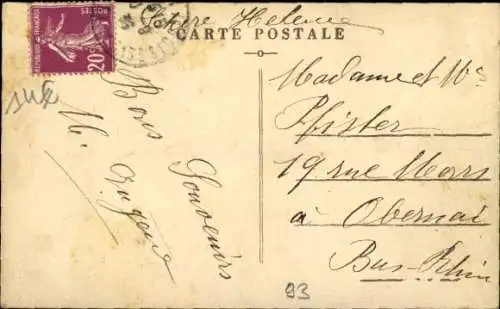 Helene
CARTE POSTALE
POSTES
20c
REPUBLIQUE FRANÇAISE
Bons
Souvenirs
M.
Madame et Mr
Pfister
19 rue Mars
à Obernai
Bas-Rhin
93